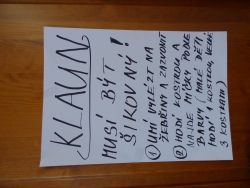 KLAUN
MUSÍ BÝT
ŠIKOVNÝ!
① UMÍ VYLÉZT NA
ŽEBŘINY A ZAZVONIT
② HODÍ KOSTKOU A
NAJDE MÍČKY PODLE
BARVY (MALÉ DĚTI
HODÍ 1 KOSTKOU, VELKÉ
3 KOSTKAMI)